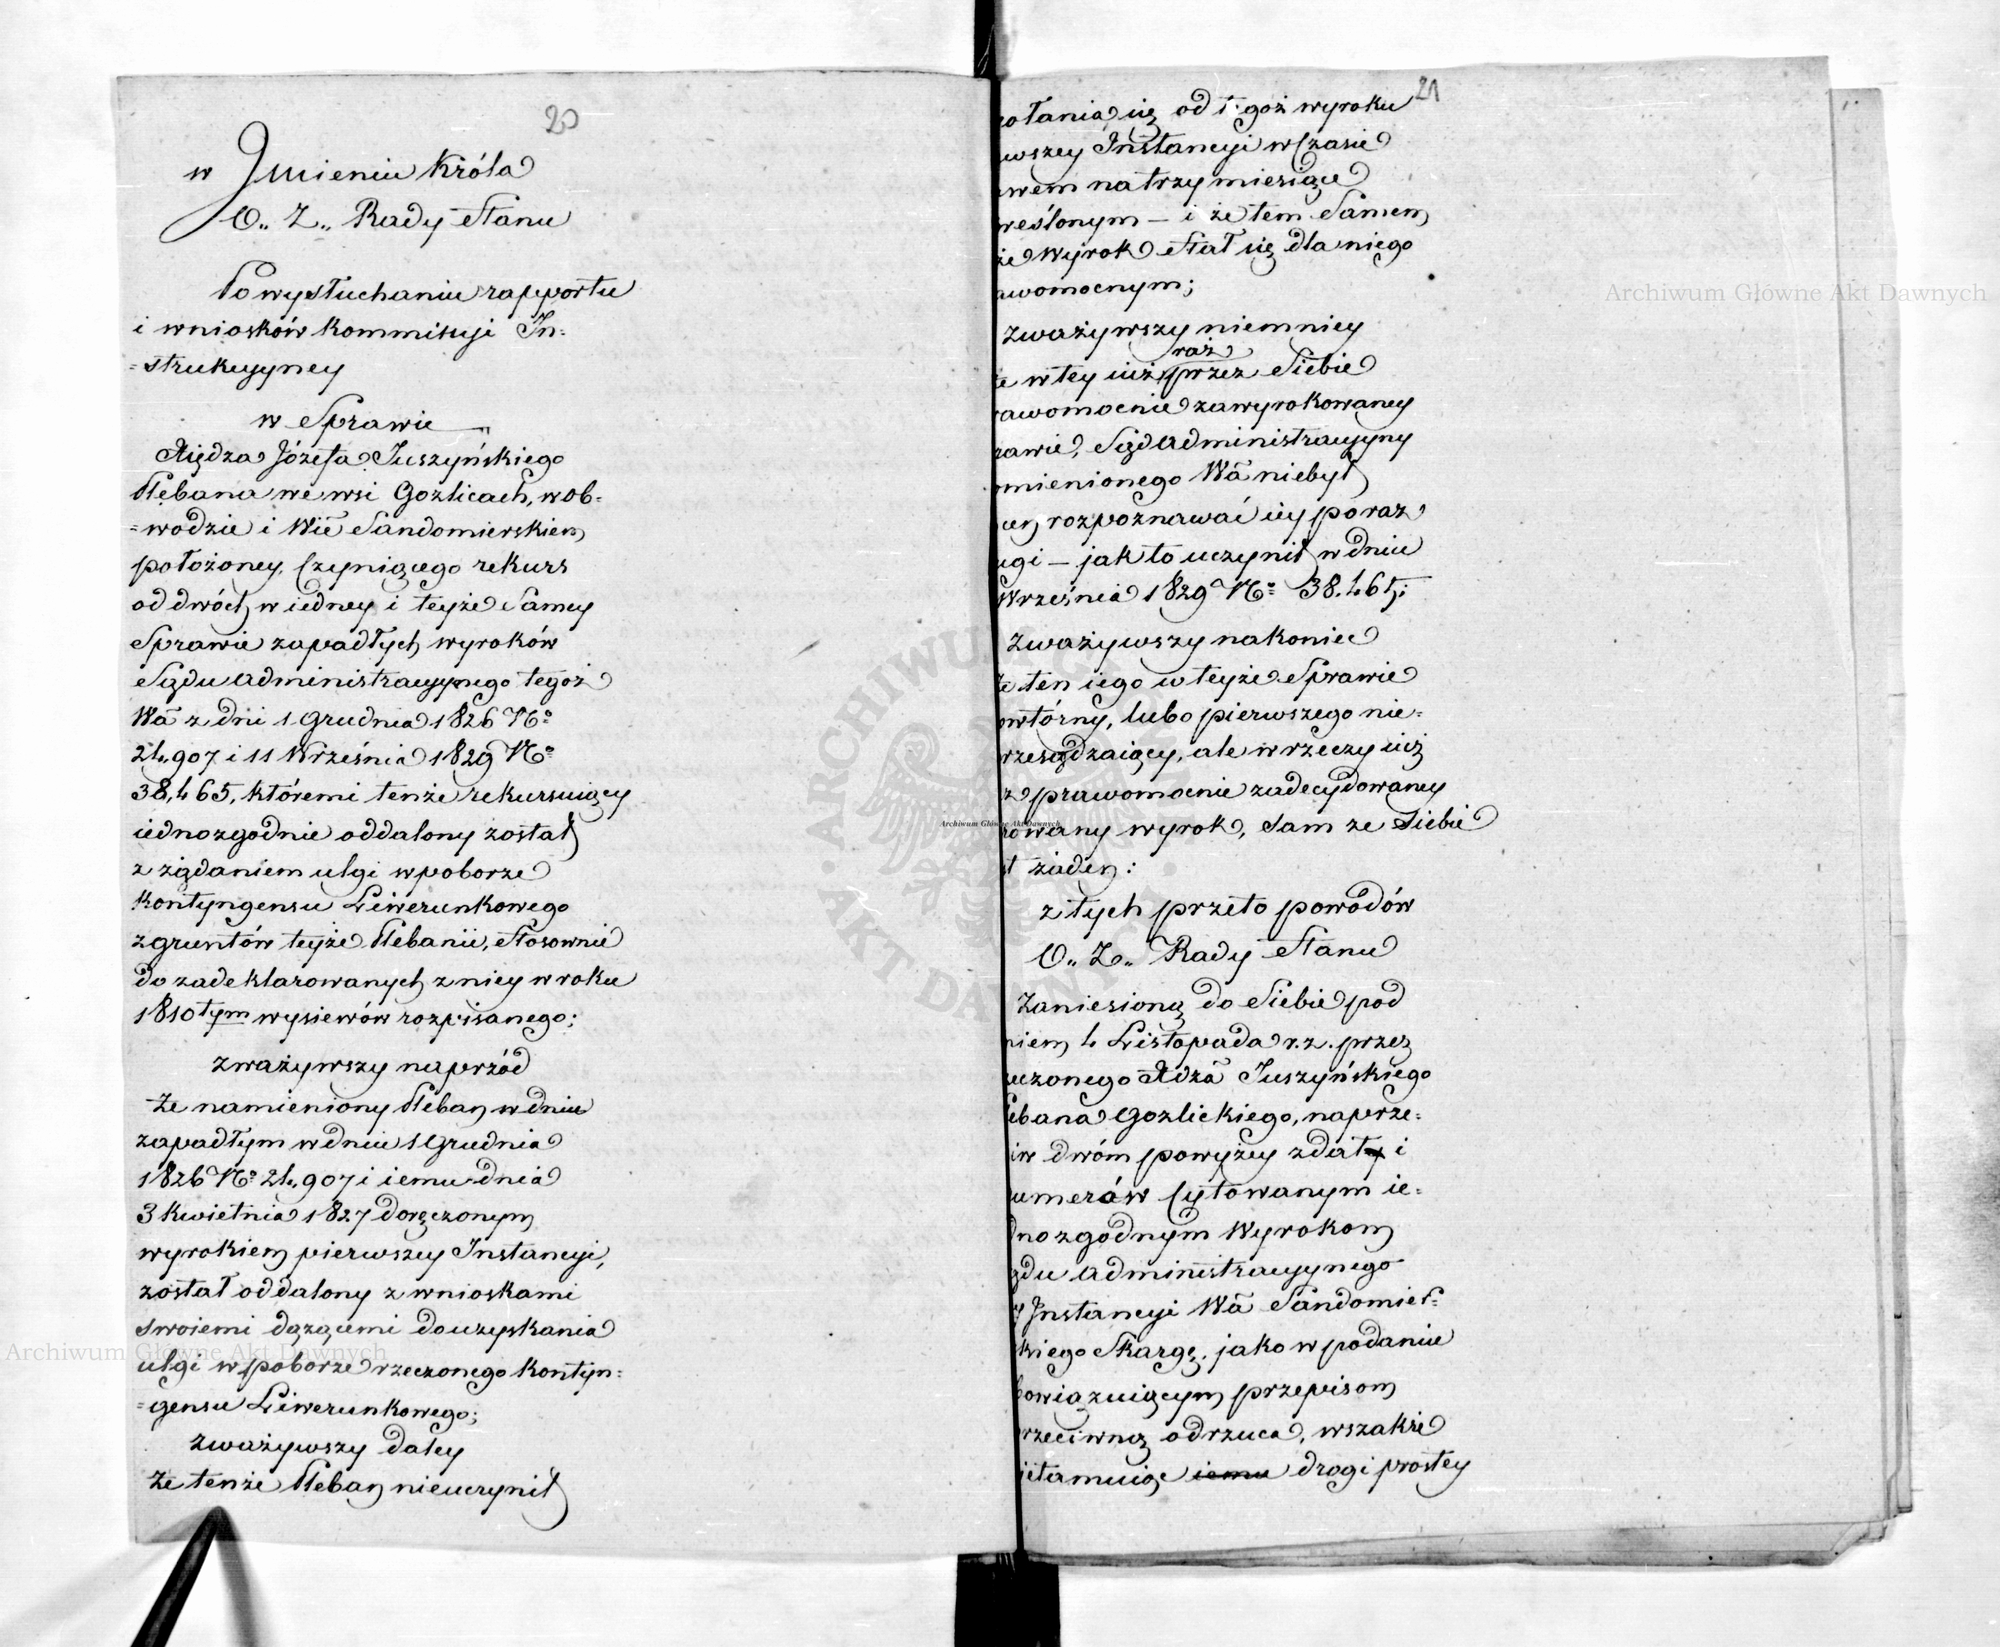 20
w Jmieniu Króla
O. Z. Rady Stanu
Po wysłuchaniu rapportu
i wniosków Kommissyi In=
=strukcyyney
w Sprawie
Xiędza Józefa Juszyńskiego
Plebana we wsi Gozlicach, w ob=
=wodzie i Wie Sandomierskiem
położoney, Czyniącego rekurs
od dwóch w iedney i teyże Samey
Sprawie zapadłych wyroków
Sądu administracyynego tegoż
Wa z dni 1 Grudnia 1826 No
24.907 i 11 Września 1829 No
38,465, któremi tenże rekursuiący
iednozgodnie oddalony został
z żądaniem ulgi w poborze
Kontyngensu Liwerunkowego
z gruntów teyże Plebanii, Stosownie
do zadeklarowanych z niey w roku
1810tym wysiewów rozpisanego;
zważywszy naprzód
Że namieniony Pleban w dniu
zapadłym w dniu 1 Grudnia
1826 No 24.907 i iemu dnia
3 Kwietnia 1827 doręczonym
wyrokiem pierwszey Instancyi,
został oddalony z wnioskami
swoiemi dążącemi do uzyskania
ulgi w poborze rzeczonego Kontyn=
=gensu Liwerunkowego;
zważywszy daley
Że tenże Pleban nieuczynił
21
ołania się od tegoż wyroku
wszey Instancyi w Czasie
wem na trzy miesiące
reślonym — i że tem Samem
że wyrok Stał się dla niego
awomocnym;
zważywszy niemniey
że w tey iuż raz przez Siebie
rawomocnie zawyrokowaney
rawie, Sąd administracyyny
mienionego Wa niebył
cen rozpoznawać iey po raz
ugi — jak to uczynił w dniu
Września 1829 No 38.465;
zważywszy nakoniec
że ten iego w teyże Sprawie
owtórny, lubo pierwszego nie=
rzesądzaiący, ale w rzeczy iuż
z prawomocnie zadecydowaney
rowany wyrok, sam ze Siebie
t żaden:
z tych przeto powodów
O. Z. Rady Stanu
Zaniesioną do Siebie pod
niem 4 Listopada r.z. przez
eczonego Xdza Juszyńskiego
ebana Gozlickiego, naprze=
iw dwóm powyżey z dat i
umerów Cytowanym ie=
dnozgodnym Wyrokom
ądu administracyynego
y Instancyi Wa Sandomier=
kiego Skargę, jako w podaniu
bowiązuiącym przepisom
rzeciwną odrzuca, wszakże
ietamuiąc iemu drogi prostey
Archiwum Główne Akt Dawnych
Archiwum Główne Akt Dawnych
Archiwum Główne Akt Dawnych